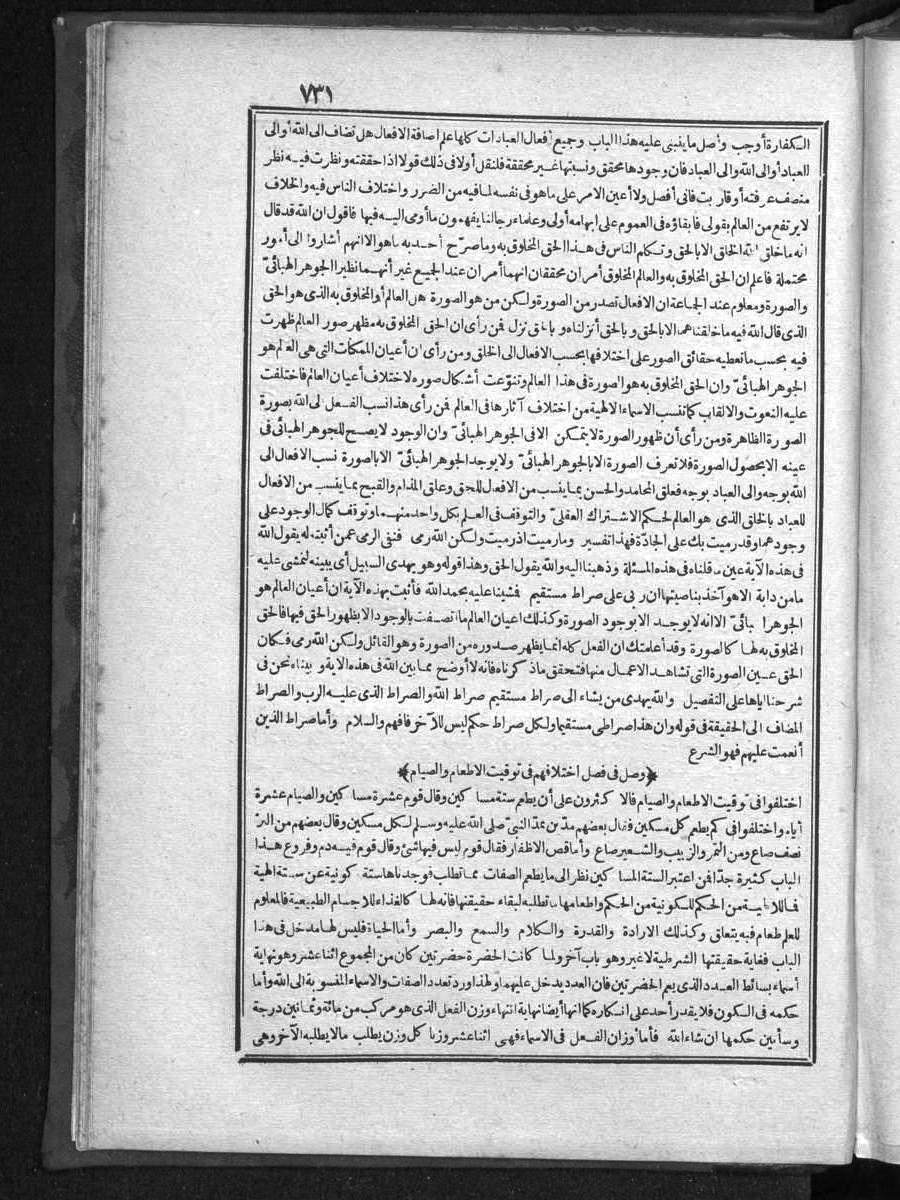 ٧٣١
الكفارة أوجب وأصل ما ينبنى عليه هذا الباب وجميع أفعال العبادات كلها علم اضافة الافعال هل تضاف الى الله أو الى
العباد أو الى الله والى العباد فان وجودها محقق ونسبتها غير محققة فلنقل أولا فى ذلك قولا اذا حققته ونظرت فيه نظر
منصف عرفته أو قاربت فانى أفصل ولا أعين الامر على ما هو فى نفسه لما فيه من الضرر واختلاف الناس فيه والخلاف
لا يرتفع من العالم بقولى فابقاؤه فى العموم على ابهامه أولى وعلماء رجالنا يفهمون ما أومى اليه فيها فاقول ان الله قد قال
انه ما خلق الله الخلق الا بالحق وتكلم الناس فى هذا الحق المخلوق به وما صرح أحد به ما هو الا انهم أشاروا الى أمور
محتملة فاعلم ان الحق المخلوق به والعالم المخلوق أمران محققان انهما أمران عند الجميع غير أنهما نظيرا الجوهر الهبائىّ
والصورة ومعلوم عند الجماعة ان الافعال تصدر من الصورة ولكن من هو الصورة هل العالم أو المخلوق به الذى هو الحق
الذى قال الله فيه ما خلقناهما الا بالحق وبالحق أنزلناه وبالحق نزل فمن رأى ان الحق المخلوق به مظهر صور العالم ظهرت
فيه بحسب ما تعطيه حقائق الصور على اختلافها بحسب الافعال الى الخلق ومن رأى ان أعيان الممكنات التى هى العالم هو
الجوهر الهبائىّ وان الحق المخلوق به هو الصورة فى هذا العالم وتنوّعت أشكال صوره لاختلاف أعيان العالم فاختلفت
عليه النعوت والالقاب كما تنسب الاسماء الالهية من اختلاف آثارها فى العالم فمن رأى هذا نسب الفعل الى الله بصورة
الصورة الظاهرة ومن رأى أن ظهور الصورة لا يتمكن الا فى الجوهر الهبائىّ وان الوجود لا يصح للجوهر الهبائى فى
عينه الا بحصول الصورة فلا تعرف الصورة الا بالجوهر الهبائىّ ولا يوجد الجوهر الهبائىّ الا بالصورة نسب الافعال الى
الله بوجه والى العباد بوجه فعلق المحامد والحسن بما ينسب من الافعال للحق وعلق المذام والقبح بما ينسب من الافعال
للعباد بالخلق الذى هو العالم لحكم الاشتراك العقلىّ والتوقف فى العلم بكل واحد منهما وتوقف كمال الوجود على
وجودهما وقد رميت بك على الجادّة فهذا تفسير وما رميت اذ رميت ولكن الله رمى فنفى الرمى عمن أثبته له يقول الله
فى هذه الآية عين ما قلناه فى هذه المسئلة وذهبنا اليه والله يقول الحق وهذا قوله وهو يهدى السبيل أى يبينه لنمشى عليه
ما من دابة الا هو آخذ بناصيتها ان ربى على صراط مستقيم فشينا عليه بحمد الله فأثبت بهذه الآية ان أعيان العالم هو
الجوهر الهبائىّ الا انه لا يوجد الا بوجود الصورة وكذلك اعيان العالم ما اتصفت بالوجود الا بظهور الحق فيها فالحق
المخلوق به لها كالصورة وقد أعلمتك ان الفعل كله انما يظهر صدوره من الصورة وهو القائل ولكن الله رمى فكان
الحق عين الصورة التى تشاهد الاعمال منها فتحقق ما ذكرناه فانه لا أوضح مما بين الله فى هذه الآية وبيناه نحن فى
شرحنا اياها على التفصيل والله يهدى من يشاء الى صراط مستقيم صراط الله والصراط الذى عليه الرب والصراط
المضاف الى الحقيقة فى قوله وان هذا صراطى مستقيما ولكل صراط حكم ليس للآخر فافهم والسلام وأما صراط الذين
أنعمت عليهم فهو الشرع
﴿وصل فى فصل اختلافهم فى توقيت الاطعام والصيام﴾
اختلفوا فى توقيت الاطعام والصيام فالاكثرون على أن يطعم ستة مساكين وقال قوم عشرة مساكين والصيام عشرة
أيام واختلفوا فى كم يطعم كل مسكين فقال بعضهم مدّين بمدّ النبىّ صلى الله عليه وسلم لكل مسكين وقال بعضهم من البرّ
نصف صاع ومن التمر والزبيب والشعير صاع وأما قص الاظفار فقال قوم ليس فيها شئ وقال قوم فيه دم وفروع هذا
الباب كثيرة جدّا فمن اعتبر الستة المساكين نظر الى ما يطعم الصفات مما تطلب فوجدناها ستة كونية عن ستة الهية
فما للالهية من الحكم للكونية من الحكم واطعامها ما تطلبه لبقاء حقيقتها فانه لها كالغذاء للاجسام الطبيعية فالمعلوم
للعلم طعام فبه يتعلق وكذلك الارادة والقدرة والكلام والسمع والبصر وأما الحياة فليس لها مدخل فى هذا
الباب فغاية حقيقتها الشرطية لا غير وهو باب آخر ولما كانت الحضرة حضرتين كان من المجموع اثنا عشر وهو نهاية
أسماء بسائط العدد الذى يعم الحضرتين فان العدد يدخل عليهما ولهذا ورد تعدد الصفات والاسماء المنسوبة الى الله وأما
حكمه فى الكون فلا يقدر أحد على انكاره كما انها أيضا نهاية انتهاء وزن الفعل الذى هو مركب من مائة وثمانين درجة
وسأبين حكمها ان شاء الله فأما أوزان الفعل فى الاسماء فهى اثنا عشر وزنا كل وزن يطلب ما لا يطلبه الآخر وهى